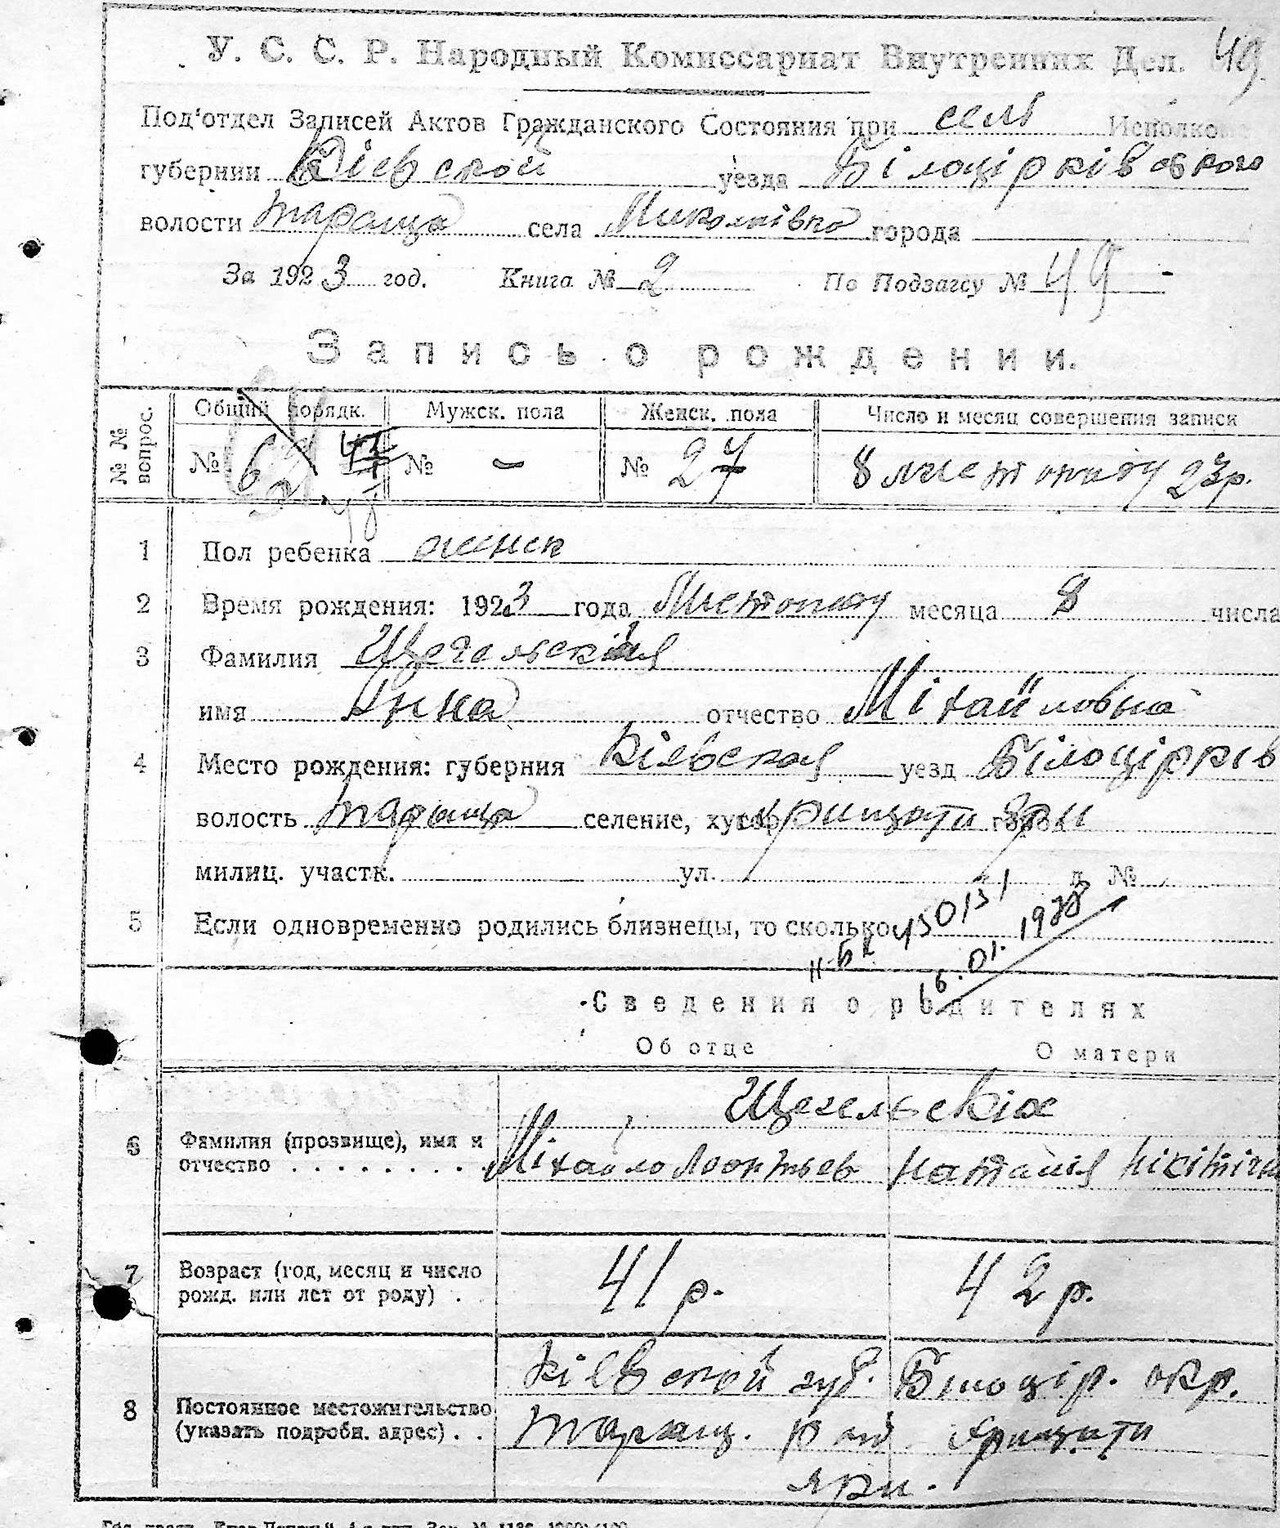 У. С. С. Р. Народный Комиссариат Внутренних Дел. 49
Под'отдел Записей Актов Гражданского Состояния при селі Исполкоме
губернии Кіевской уезда Білоцірківського
волости Тараща села Миколаївка города
За 1923 год. Книга № 2 По Подзагсу № 49 -
Запись о рождении.
№ № вопрос. Общий порядк. Мужск. пола Женск. пола Число и месяц совершения записи
№ 62 № - № 27 8 листопаду 23р.
1 Пол ребенка женск
2 Время рождения: 1923 года Листопаду месяца 8 числа
3 Фамилия Щегельская
имя Анна отчество Міхайловна
4 Место рождения: губерния Кіевская уезд Білоцірків
волость Тараща селение, хутор Хрищати Яри город
милиц. участк. ул. д. №
5 Если одновременно родились близнецы, то сколько
II-БК 450131
16.01.1978
Сведения о родителях
Об отце О матери
Щегельскіх
6 Фамилия (прозвище), имя и отчество Міхайло Леонтьев Наталія Нікітічна
7 Возраст (год, месяц и число рожд. или лет от роду) 41 р. 42 р.
Кіевской губ. Білоцір. окр.
8 Постоянное местожительство (указать подробн. адрес) Таращ. рай. Хрищати
Яри.